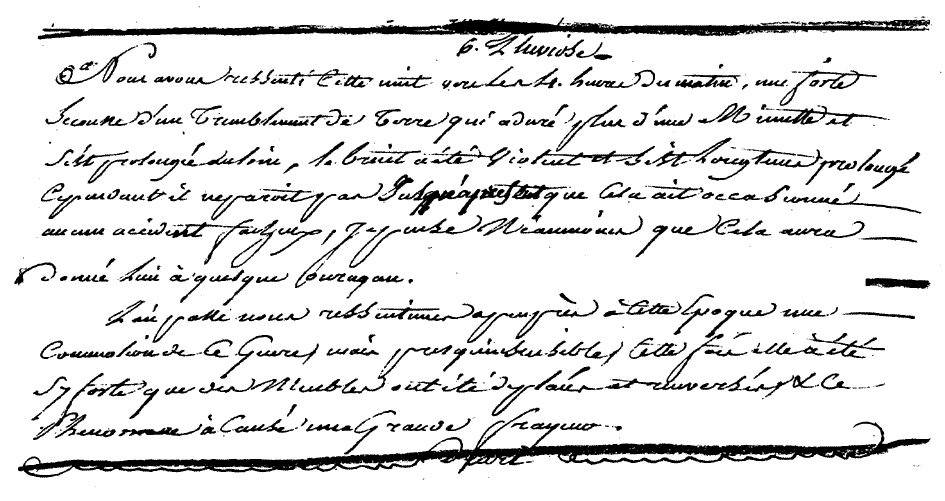 6. Pluviose
Nous avons ressenti cette nuit vers les 4. heures du matin, une forte
Secousse d'un Tremblement de Terre qui a duré plus d'une Minutte et
s'est prolongée au loin, le bruit a été Violent et s'est Longtems prolongé
Cependant il ne paroit pas Jusqu'à présent que cela ait occasionné
aucun accident facheux, Je pense Néanmoins que Cela aura
donné lieu à quelque ouragan.
L'an passé nous ressentimes apeuprès à Cette Epoque une
Commotion de Ce Genre, mais presqu'insensible, Cette fois elle a été
Sy forte que des Meubles ont été deplacés et renversés, & Ce
Phenomene à Causé une Grande frayeur.